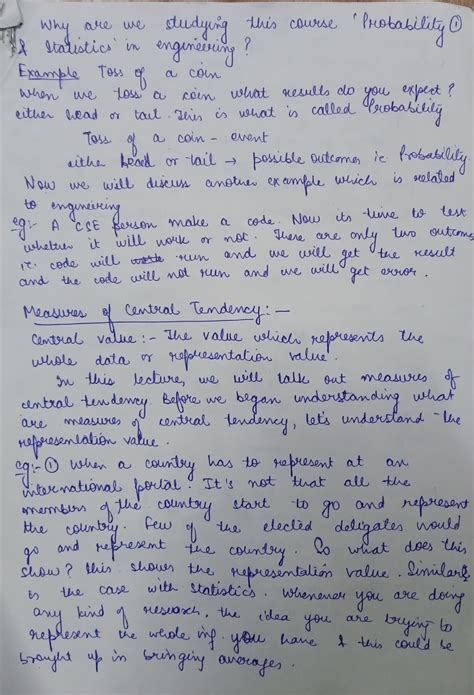 Why are we studying this course 'Probability ①
& Statistics' in engineering?
Example Toss of a coin
When we toss a coin what results do you expect?
either head or tail. This is what is called Probability
Toss of a coin - event
either head or tail → possible outcomes ie Probability.
Now we will discuss another example which is related
to engineering
eg:- A CSE person make a code. Now its time to test
whether it will work or not. There are only two outcomes
i.e. code will run and we will get the result
and the code will not run and we will get error.
Measures of Central Tendency:-
Central value:- The value which represents the
whole data or representation value.
In this lecture, we will talk out measures of
central tendency. Before we began understanding what
are measures of central tendency, let's understand the
representation value.
eg:- ① When a country has to represent at an
international portal. It's not that all the
members of the country start to go and represent
the country. Few of the elected deligates would
go and represent the country. So what does this
show? This shows the representation value. Similarly
is the case with statistics. Whenever you are doing
any kind of research, the idea you are trying to
represent the whole inf. you have & this could be
brought up in bringing averages.